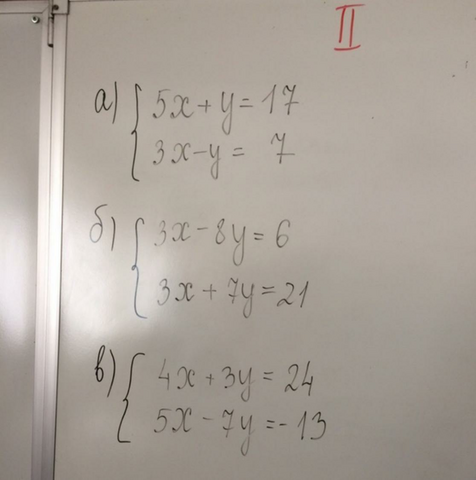 II
а) 5x+y=17
3x-y= 7
б) 3x-8y=6
3x+7y=21
в) 4x+3y=24
5x-7y=-13